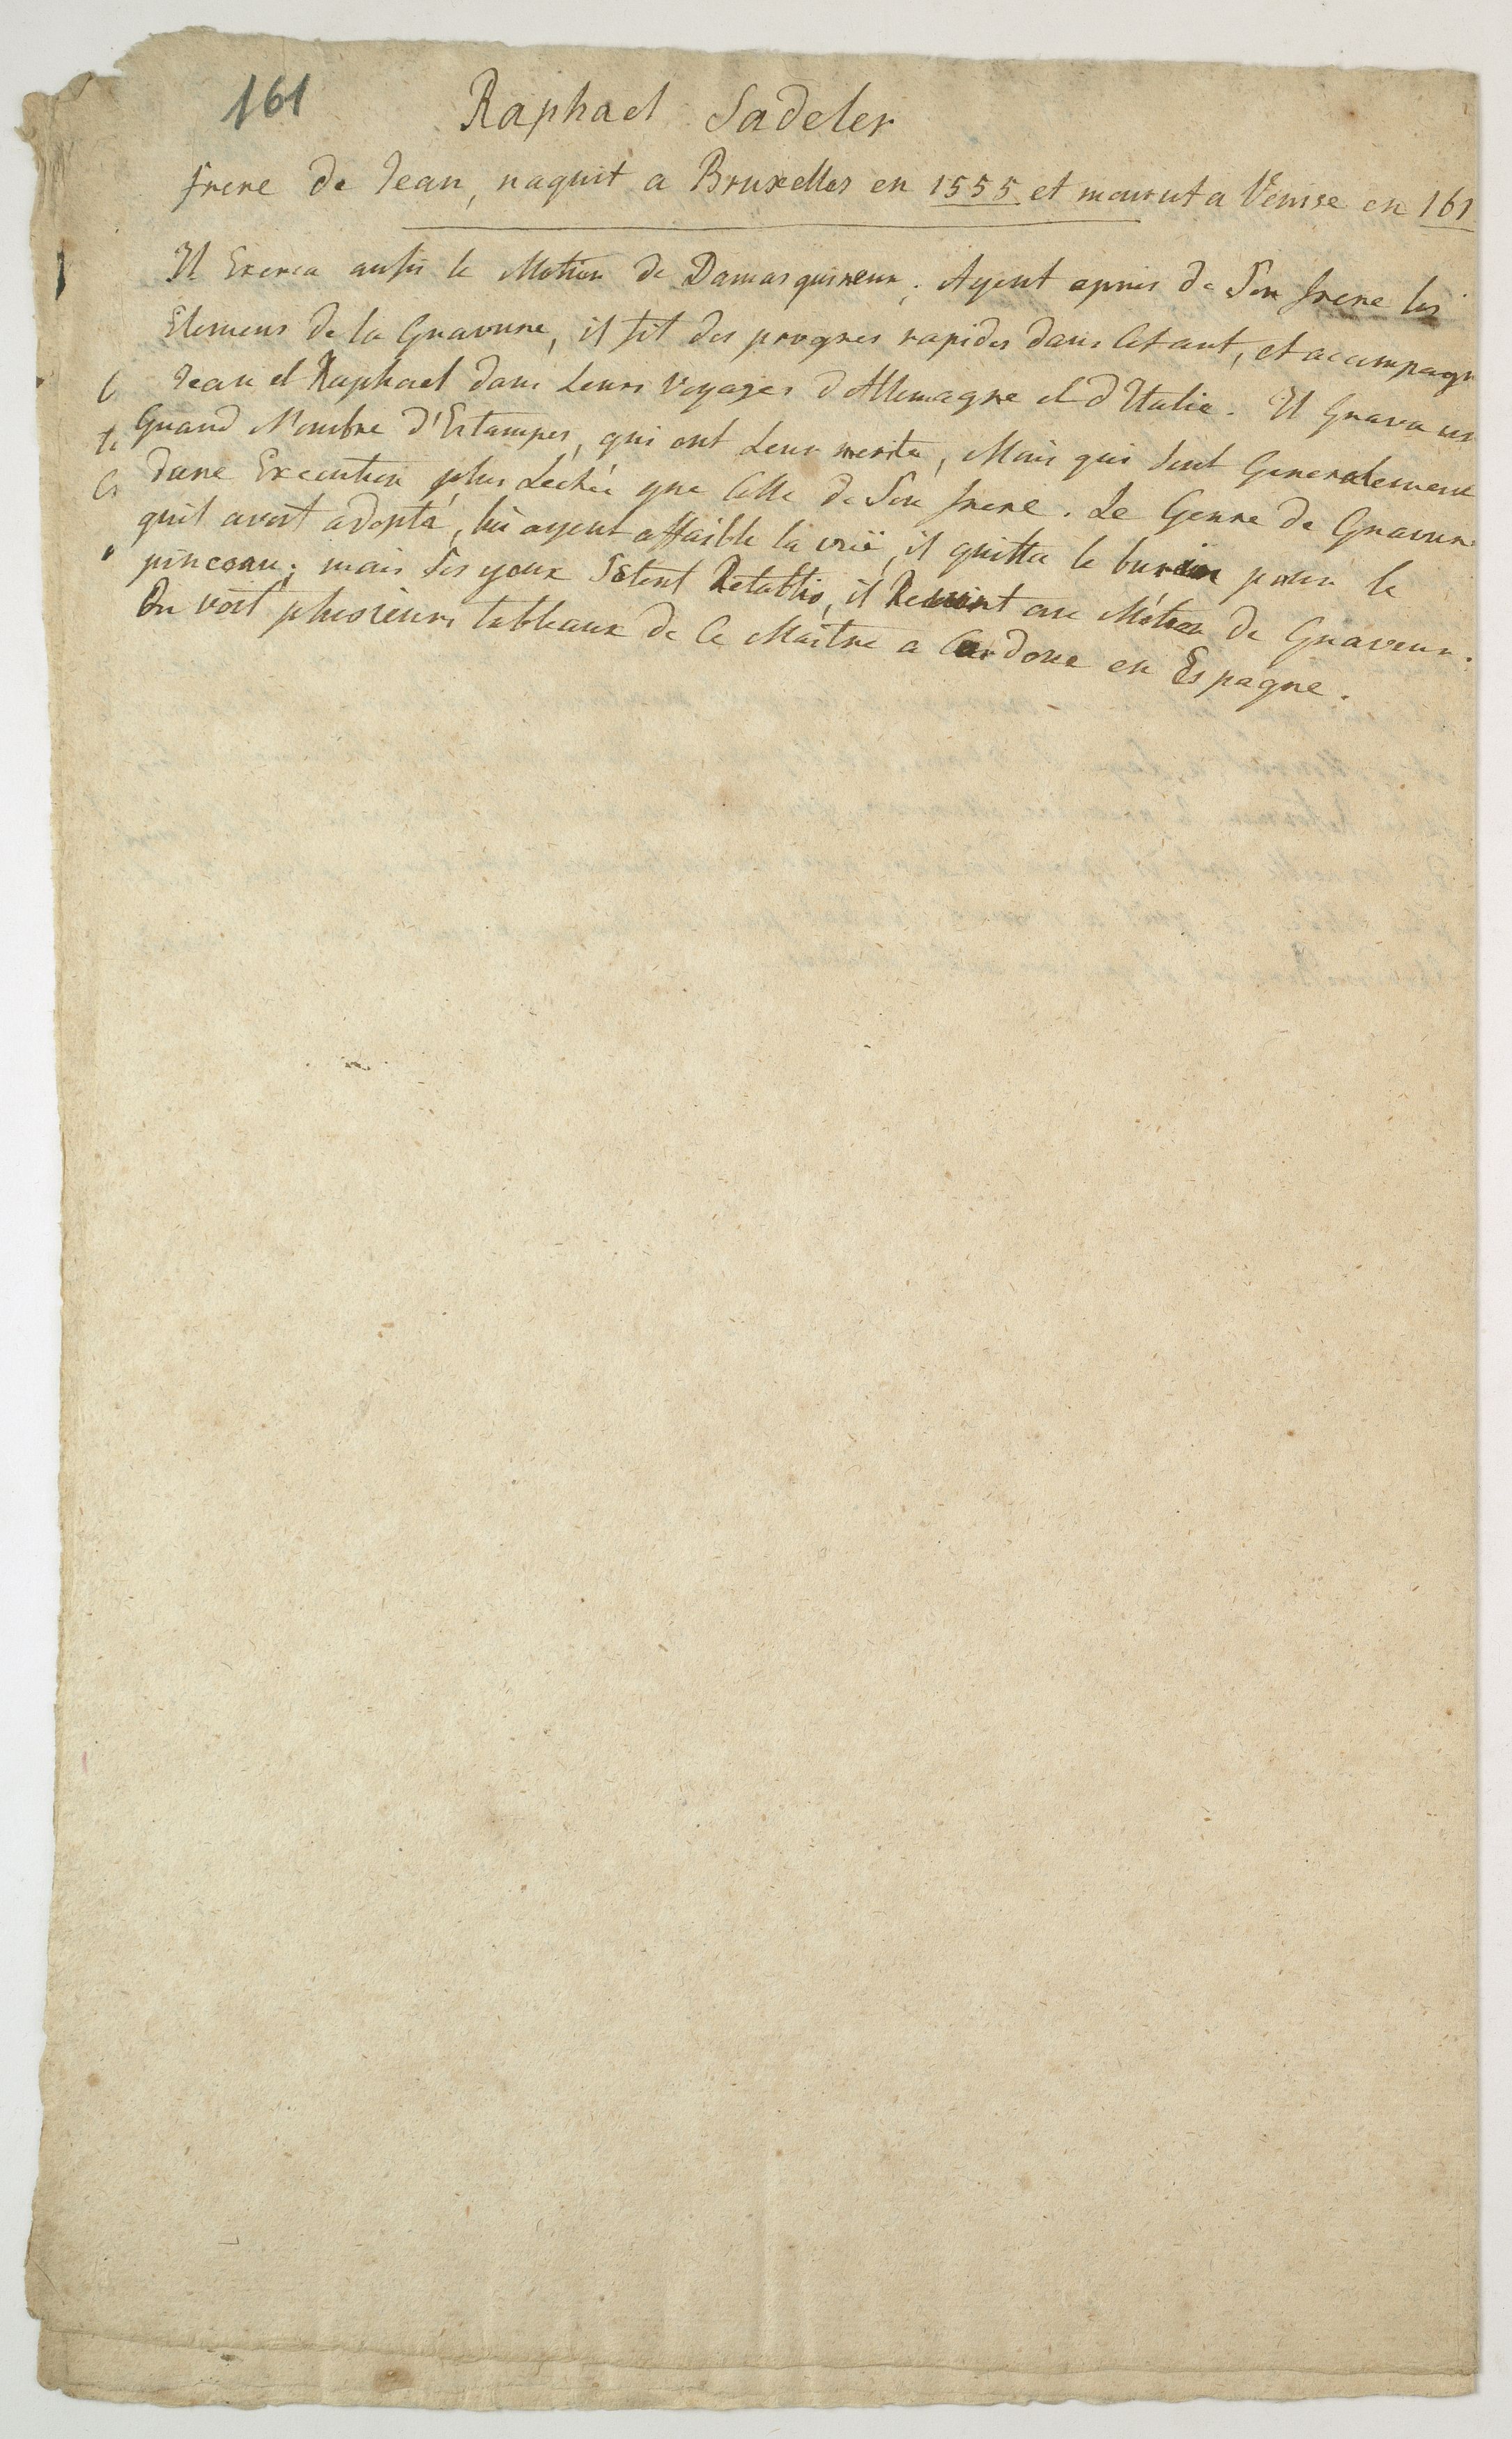 161
Raphael Sadeler
frere de Jean, naquit a Bruxelles en 1555 et mourut a Venise en 161
Il Exerca aussi le Metier de Damasquineur, Ayent apris de Son frere les
Elemens de la Gravure, il fit des progres rapides dans Cet art, et acompagn
Jean et Raphael dans Leurs Voyages d'Allemagne et d'Italie. Il Grava un
Grand Nombre d'Estampes, qui ont Leur merite, Mais qui Sont Generalement
dune Execution plus Lechée que Celle de Son frere. Le Genre de Gravure
quil avoit adopté, lui ayent affaibli la vüe, il quitta le burin pour le
pinceau; mais Ses yeux Setent Retablis, il Revint au Métier de Graveur.
On voit plusieurs tableaux de Ce Maitre a Cordoue en Espagne.